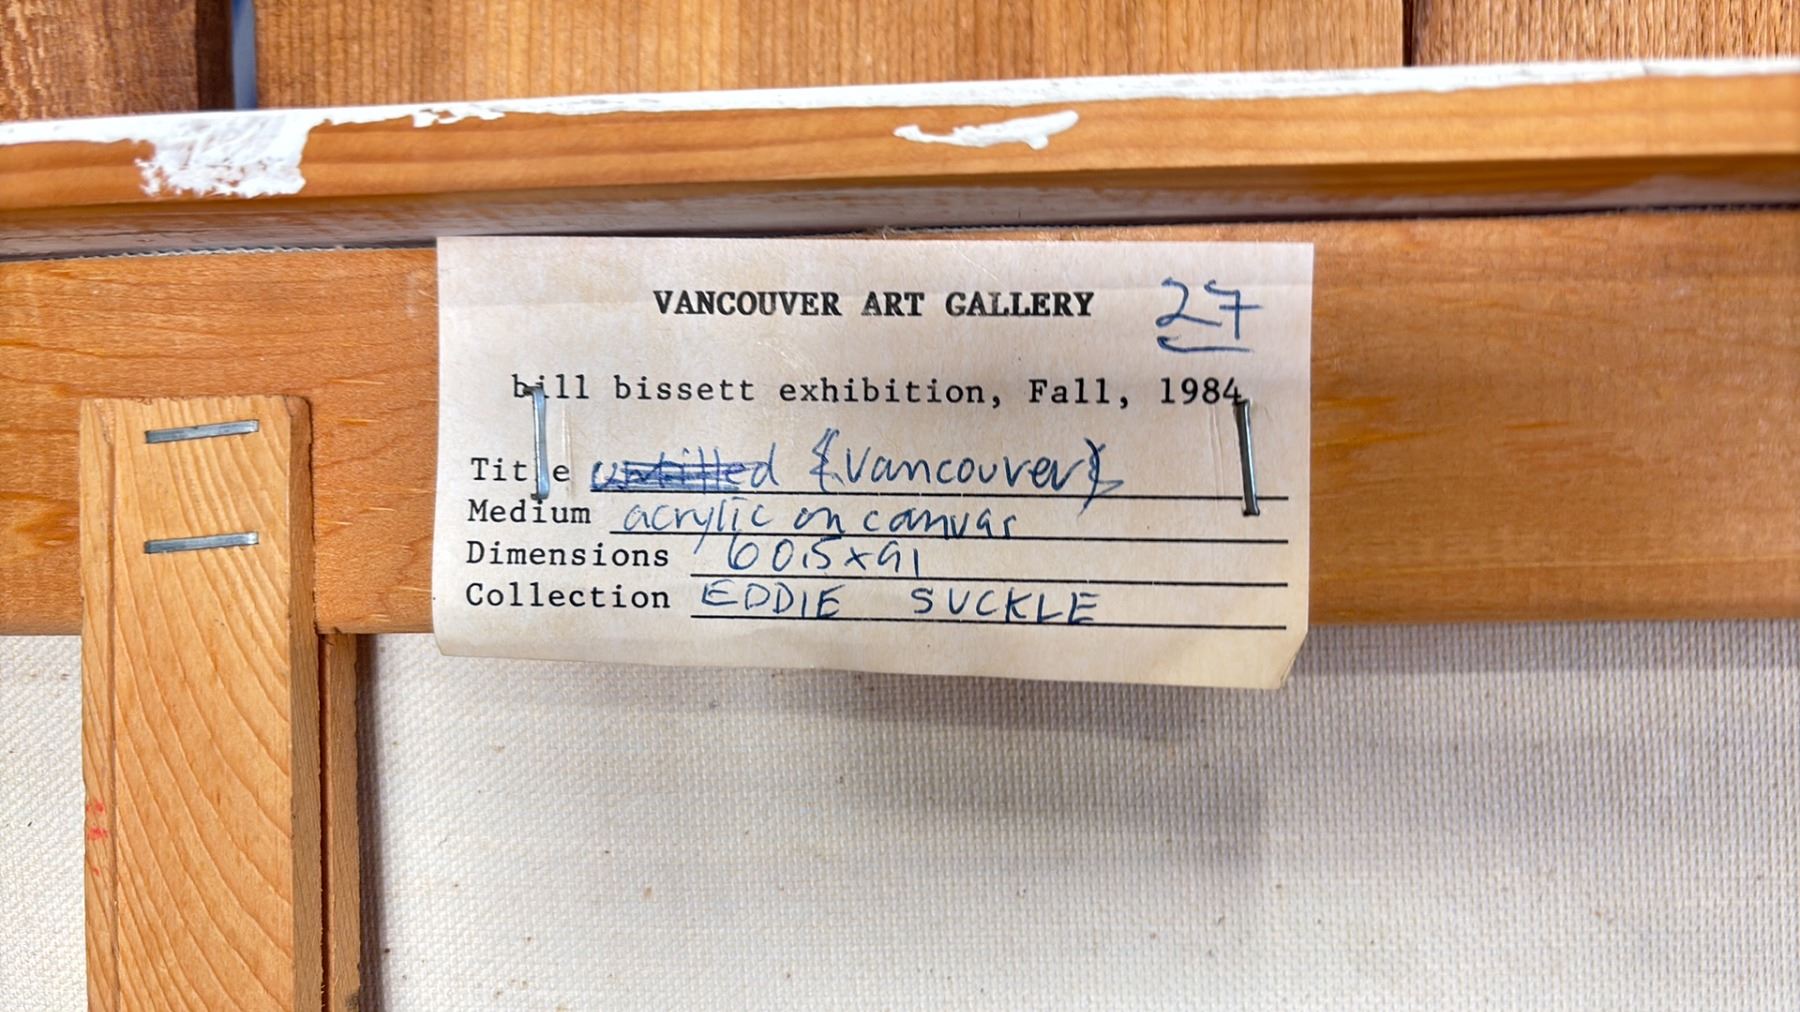 VANCOUVER ART GALLERY 27
bill bissett exhibition, Fall, 1984
Title untitled {vancouver}
Medium acrylic on canvas
Dimensions 60.5 x 91
Collection EDDIE SUCKLE